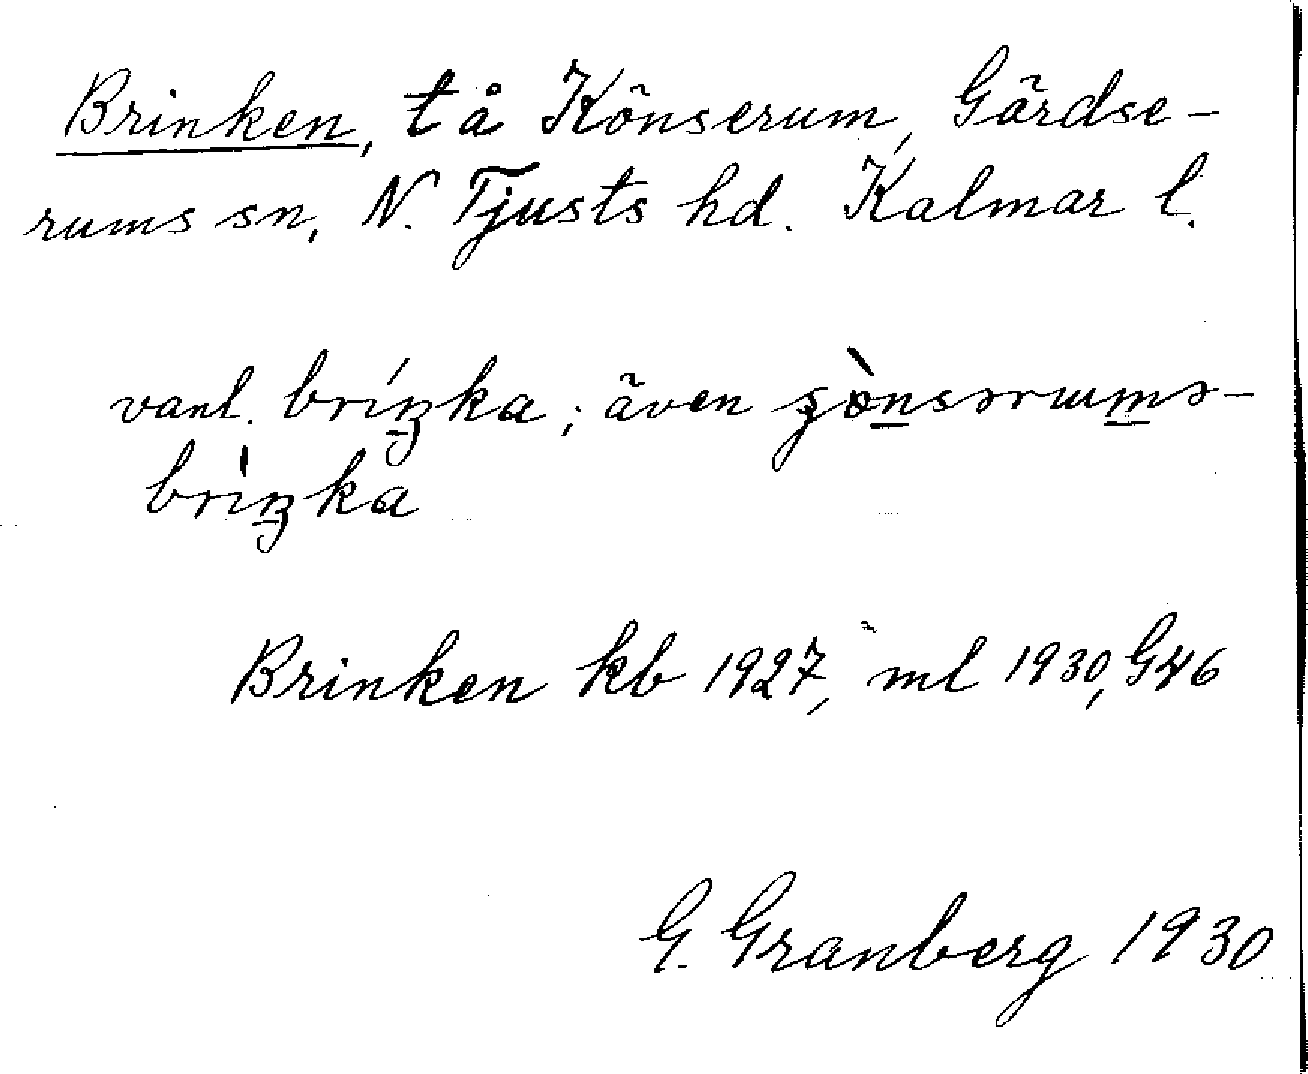 Brinken, tå Könserum, Gärdse-
rums sn, N. Tjusts hd. Kalmar l.
vanl. bríŋka; även
brìŋka
Brinken kb 1927, ml 1930, G46
G. Granberg 1930